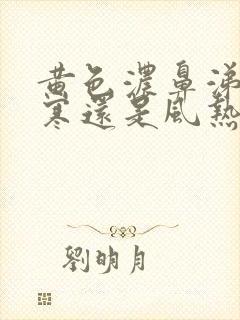 黃色濃鼻涕
寒還是風熱
劉明月